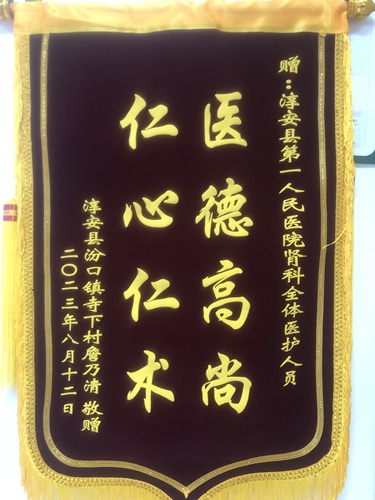 赠：淳安县第一人民医院肾科全体医护人员
医德高尚
仁心仁术
淳安县汾口镇寺下村詹乃清 敬赠
二〇二三年八月十二日